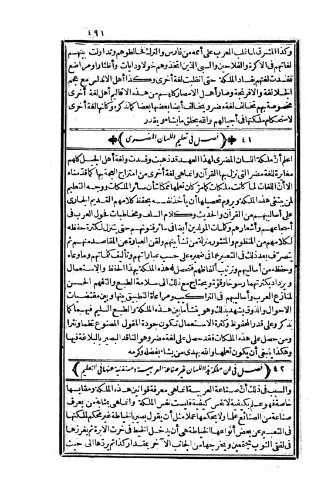 ٤٩١
وكذا المشرق لما غلب العرب على أممه من فارس والترك فخالطوهم وتداولت بينهم
لغاتهم في الاكرة والفلاحين والسبي الذين اتخذوهم خولا ودايات وأظآرا ومراضع
ففسدت لغتهم بفساد الملكة حتى انقلبت لغة أخرى وكذا أهل الاندلس مع عجم
الجلالقة والافرنجة وصار أهل الامصار كلهم من هذه الاقاليم أهل لغة أخرى
مخصوصة بهم تخالف لغة مضر ويخالف أيضا بعضها بعضا كما نذكره وكأنها لغة أخرى
لاستحكام ملكتها في أجيالهم والله يخلق ما يشاء ويقدر
٤١ ﴿فصل في تعليم اللسان المضري﴾
اعلم أن ملكة اللسان المضري لهذا العهد قد ذهبت وفسدت ولغة أهل الجيل كلهم
مغايرة للغة مضر التي نزل بها القرآن وانما هي لغة أخرى من امتزاج العجمة بها كما قدمناه
الا أن اللغات لما كانت ملكات كما مر كان تعلمها ممكنا شأن سائر الملكات ووجه التعليم
لمن يبتغي هذه الملكة ويروم تحصيلها أن يأخذ نفسه بحفظ كلامهم القديم الجاري
على أساليبهم من القرآن والحديث وكلام السلف ومخاطبات فحول العرب في
أسجاعهم وأشعارهم وكلمات المولدين أيضا في سائر فنونهم حتى يتنزل لكثرة حفظه
لكلامهم من المنظوم والمنثور منزلة من نشأ بينهم ولقن العبارة عن المقاصد منهم ثم
يتصرف بعد ذلك في التعبير عما في ضميره على حسب عباراتهم وتأليف كلماتهم وما وعاه
وحفظه من أساليبهم وترتيب ألفاظهم فتحصل له هذه الملكة بهذا الحفظ والاستعمال
ويزداد بكثرتهما رسوخا وقوة ويحتاج مع ذلك الى سلامة الطبع والتفهم الحسن
لمنازع العرب وأساليبهم في التراكيب ومراعاة التطبيق بينها وبين مقتضيات
الاحوال والذوق يشهد بذلك وهو ينشأ ما بين هذه الملكة والطبع السليم فيهما كما
يذكر وعلى قدر المحفوظ وكثرة الاستعمال تكون جودة المقول المصنوع نظما ونثرا
ومن حصل على هذه الملكات فقد حصل على لغة مضر وهو الناقد البصير بالبلاغة فيها
وهكذا ينبغي أن يكون تعلمها والله يهدي من يشاء بفضله وكرمه
٤٢ ﴿فصل في أن ملكة هذا اللسان غير صناعة العربية ومستغنية عنها في التعليم﴾
والسبب في ذلك أن صناعة العربية انما هي معرفة قوانين هذه الملكة ومقاييسها
خاصة فهو علم بكيفية لا نفس كيفية فليست نفس الملكة وانما هي بمثابة من يعرف
صناعة من الصنائع علما ولا يحكمها عملا مثل أن يقول بصير بالخياطة غير محكم لملكتها
في التعبير عن بعض أنواعها الخياطة هي أن يدخل الخيط في خرت الابرة ثم يغرزها
في لفقي الثوب مجتمعين ويخرجها من الجانب الآخر بمقدار كذا ثم يردها الى حيث